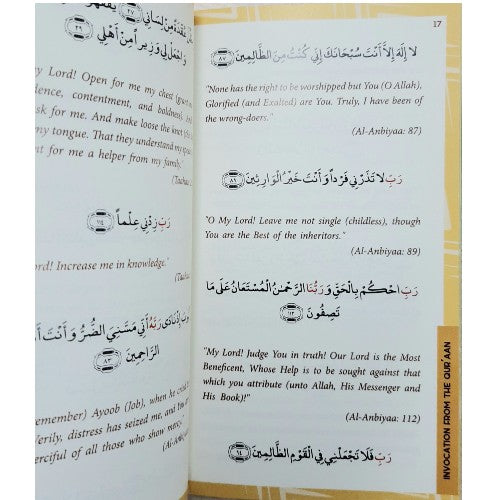 عُقْدَةً مِنْ لِسَانِي ﴿٢٧﴾ يَفْقَهُوا
﴿٢٩﴾ وَاجْعَلْ لِي وَزِيراً مِنْ أَهْلِي
My Lord! Open for me my chest (
contentment, and boldness). And
ask for me. And make loose the knot
my tongue. That they understand my
for me a helper from my family,"
رَبِّ زِدْنِي عِلْماً ﴿١١٤﴾
Lord! Increase me in knowledge."
إِذْ نَادَى رَبَّهُ أَنِّي مَسَّنِيَ الضُّرُّ وَأَنْتَ
الرَّاحِمِينَ ﴿٨٣﴾
Ayoob (Job), when he
Verily, distress has seized me, and
of all those who show mercy."
(Al-
17
لا إِلَهَ إِلاَّ أَنْتَ سُبْحَانَكَ إِنِّي كُنْتُ مِنَ الظَّالِمِينَ ﴿٨٧﴾
"None has the right to be worshipped but You (O Allah),
Glorified (and Exalted) are You. Truly, I have been of
the wrong-doers."
(Al-Anbiyaa: 87)
رَبِّ لا تَذَرْنِي فَرْداً وَأَنْتَ خَيْرُ الْوَارِثِينَ ﴿٨٩﴾
"O My Lord! Leave me not single (childless), though
You are the Best of the inheritors."
(Al-Anbiyaa: 89)
رَبِّ احْكُمْ بِالْحَقِّ وَرَبُّنَا الرَّحْمَنُ الْمُسْتَعَانُ عَلَى مَا
تَصِفُونَ ﴿١١٢﴾
"My Lord! Judge You in truth! Our Lord is the Most
Beneficent, Whose Help is to be sought against that
which you attribute (unto Allah, His Messenger and
His Book)!"
(Al-Anbiyaa: 112)
رَبِّ فَلا تَجْعَلْنِي فِي الْقَوْمِ الظَّالِمِينَ ﴿٩٤﴾
INVOCATION FROM THE QUR'AAN